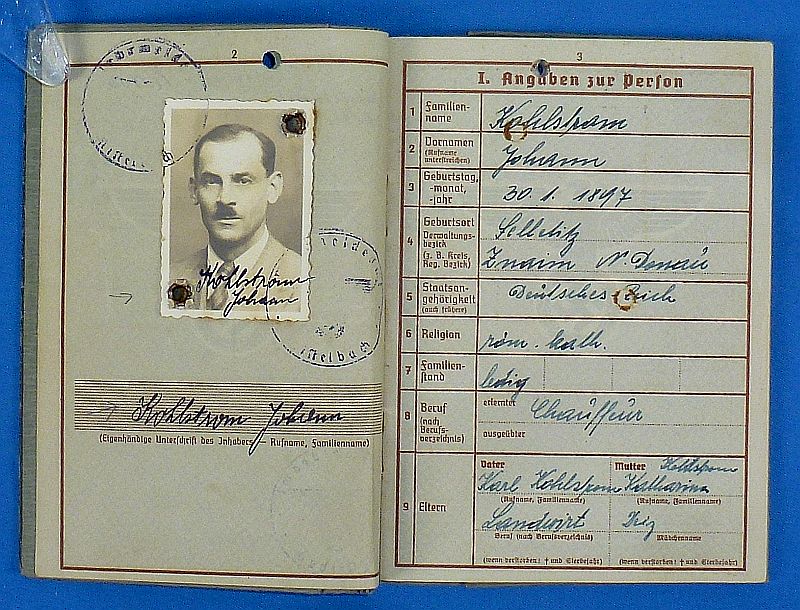 2
Kohlstrom
Johann
Kohlstrom Johann
(Eigenhändige Unterschrift des Inhabers, Rufname, Familienname)
3
I. Angaben zur Person
1 Familien-
name
Kohlstrom
2 Vornamen
(Rufname
unterstreichen)
Johann
3 Geburtstag,
-monat,
-jahr
30. 1. 1897
4 Geburtsort
Verwaltungs-
bezirk
(z. B. Kreis,
Reg. Bezirk)
Selletitz
Znaim N. Donau
5 Staatsan-
gehörigkeit
(auch frühere)
Deutsches Reich
6 Religion
röm. kath.
7 Familien-
stand
ledig
8 Beruf
(nach
Berufs-
verzeichnis)
erlernter
Chauffeur
ausgeübter
9 Eltern
Vater
Karl Kohlstrom
(Rufname, Familienname)
Landwirt
Beruf (nach Berufsverzeichnis)
(wenn verstorben: † und Sterbejahr)
Mutter Kohlstrom
Katharina
(Rufname, Familienname)
Mädchenname
(wenn verstorben: † und Sterbejahr)